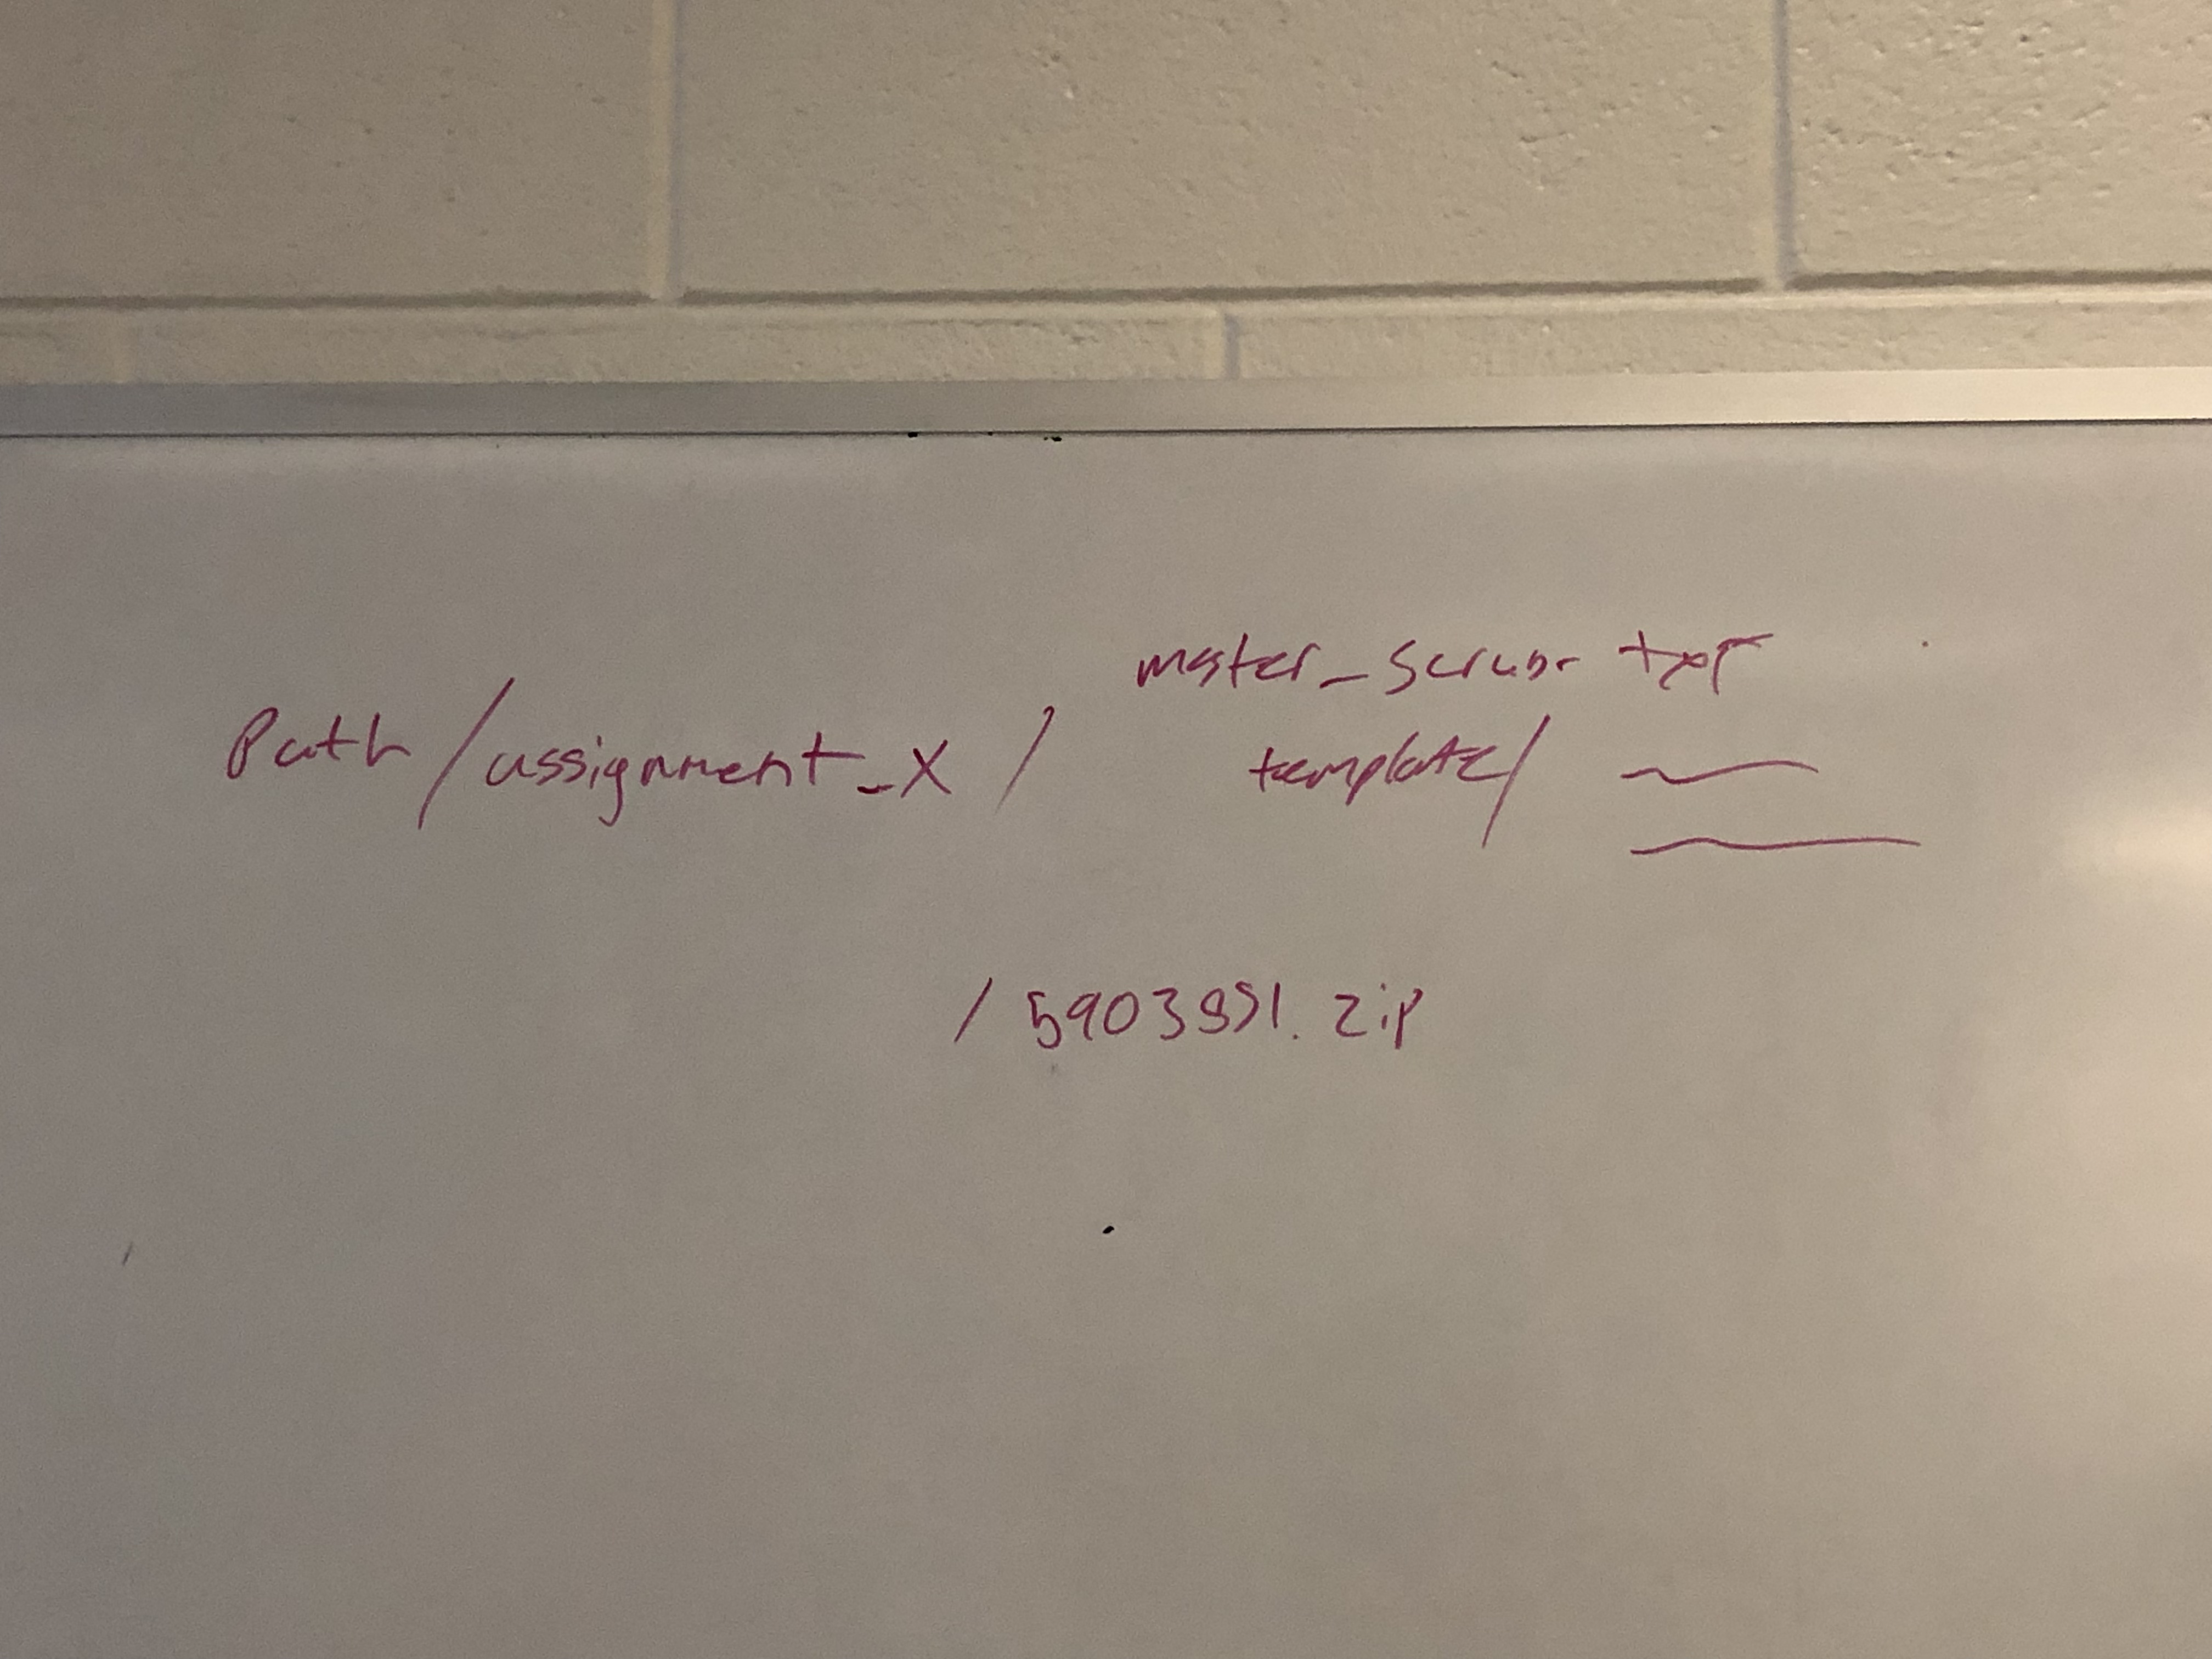 master_scrubr txt
Path/assignment_X/ template/
/5903951.zip